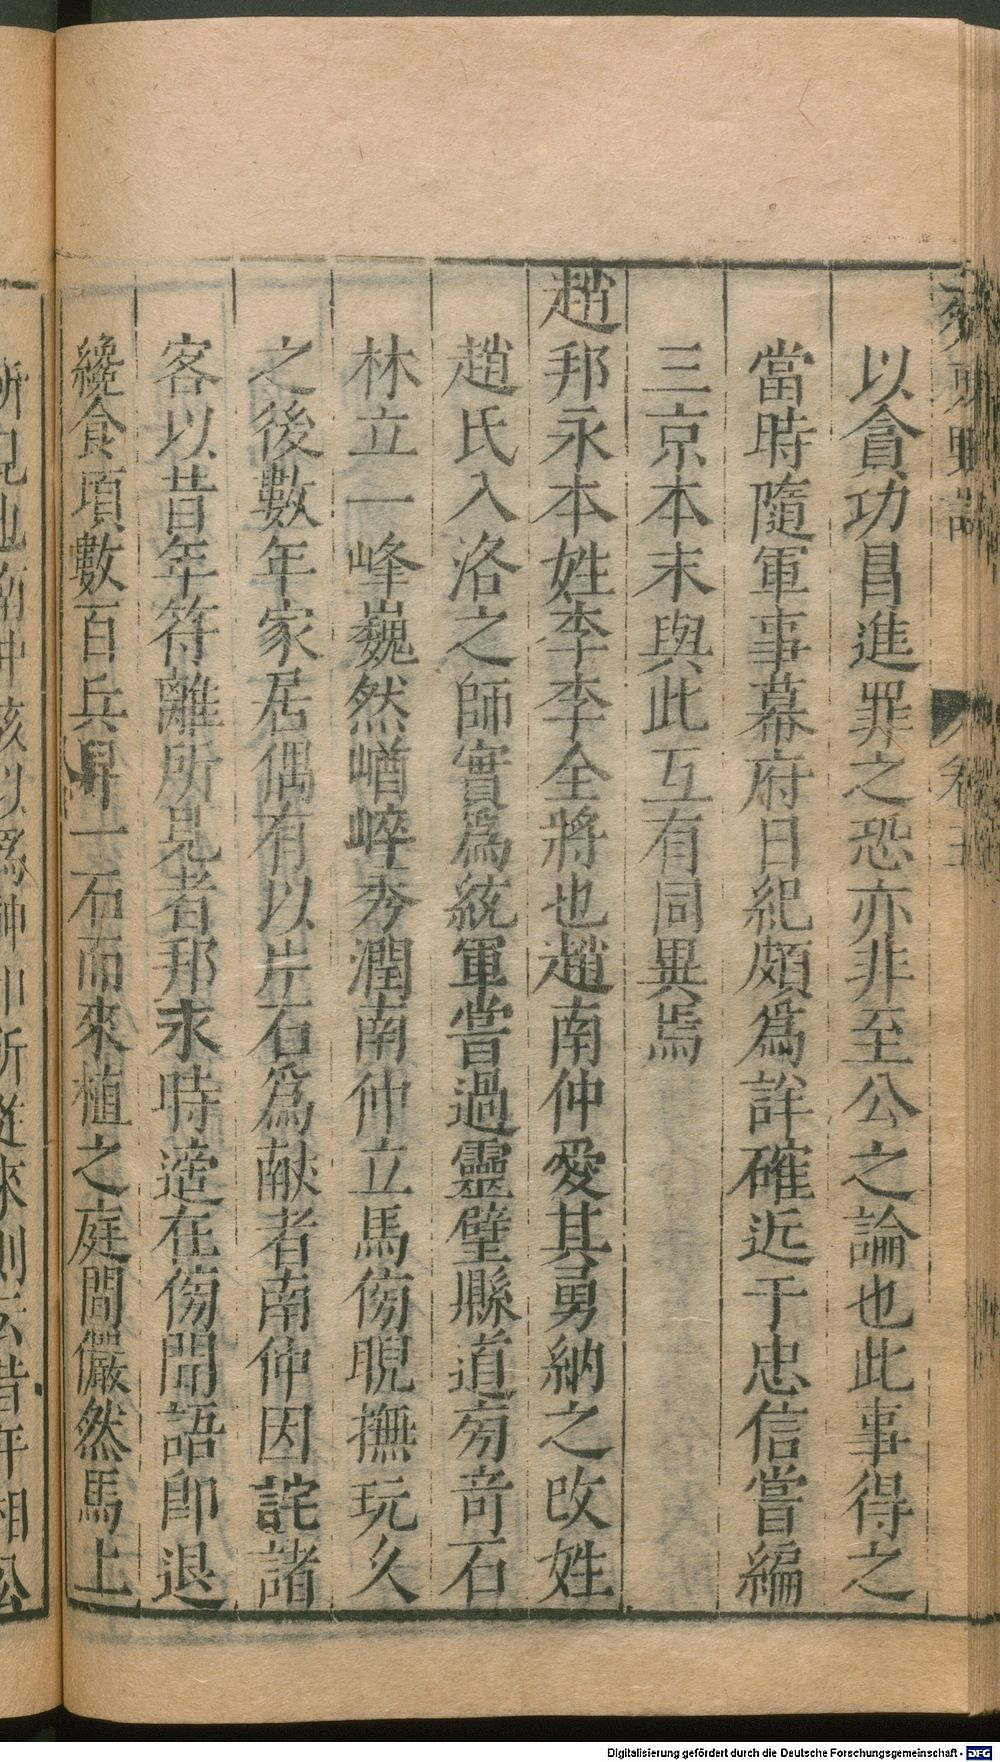 以貪功昌進罪之恐亦非至公之論也此事得之
當時隨軍事幕府日紀頗爲詳確近于忠信嘗編
三京本末與此互有同異焉
趙邦永本姓李李全將也趙南仲愛其勇納之攺姓
趙氏入洛之師實爲統軍嘗過靈璧縣道旁竒石
林立一峰巍然崷崪秀潤南仲立馬傍睨撫玩久
之後數年家居偶有以片石爲献者南仲因詫諸
客以昔年符離所見者邦永時適在傍聞語卽退
纔食項數百兵舁一石而來植之庭間儼然馬上
所見也南仲駭以爲神卽所從來則云昔年相公
卷五
Digitalisierung gefördert durch die Deutsche Forschungsgemeinschaft - DFG